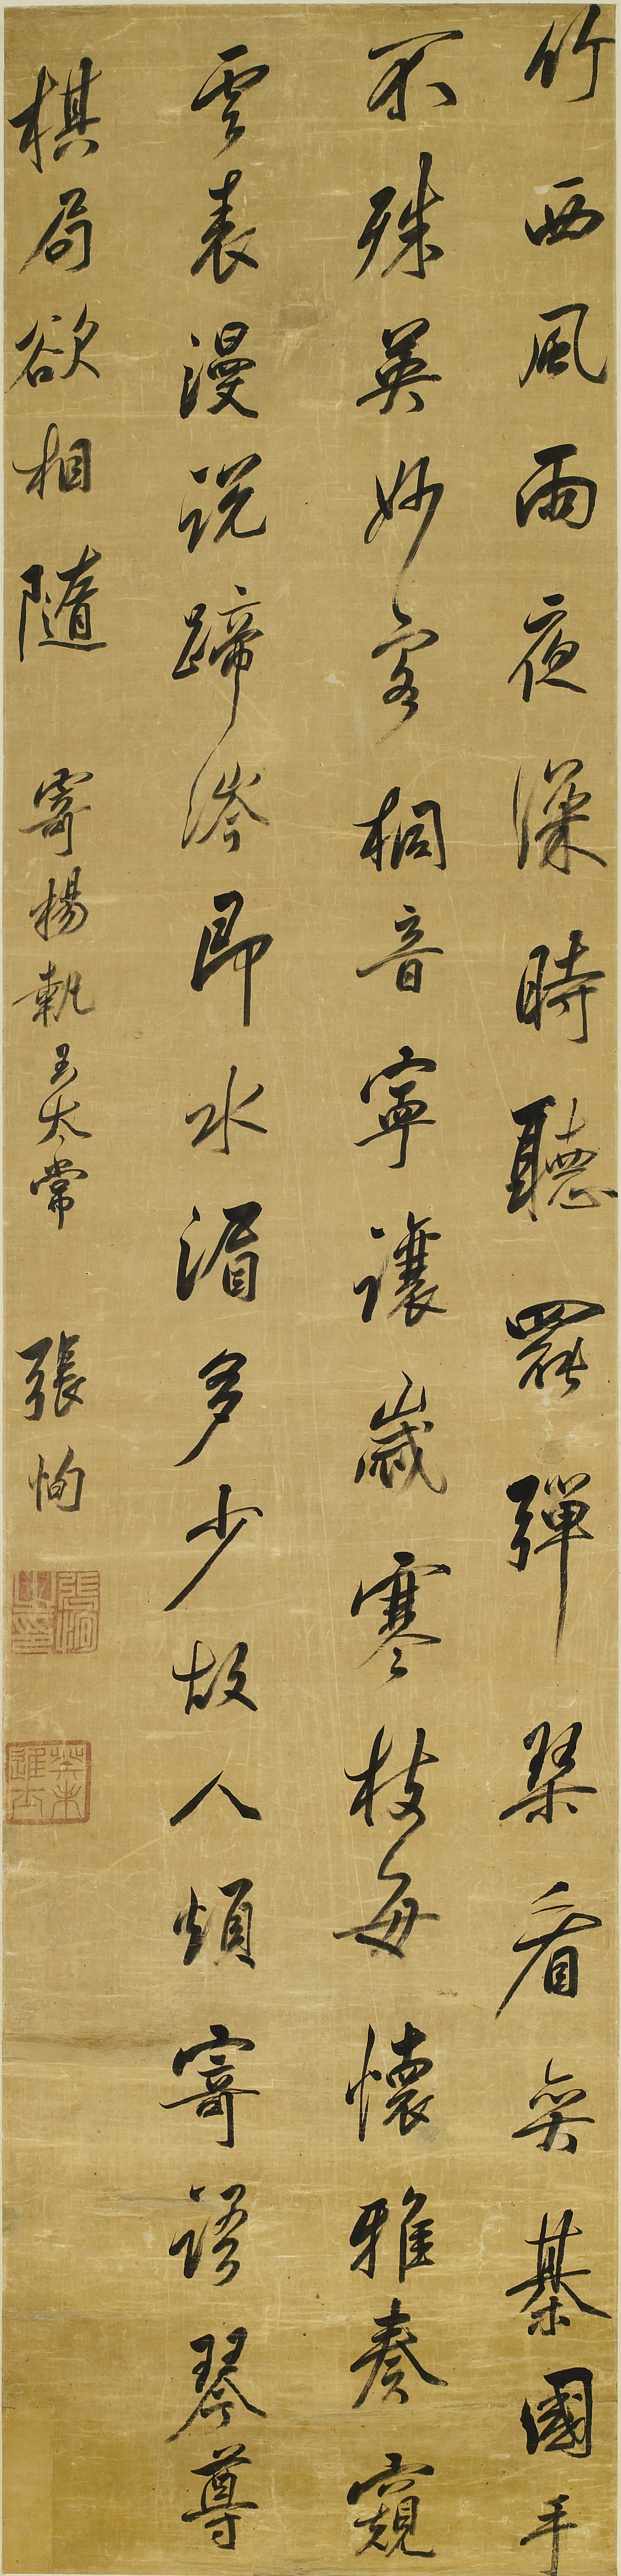 竹西風雨夜深時聽罷彈琴看奕棊國手
不殊英妙客桐音寧讓歲寒枝每懷雅奏窺
雲表漫說蹄涔即水湄多少故人煩寄語琴尊
棋局欲相隨 寄楊執玉太常 張恂
張恂之印
癸未進士